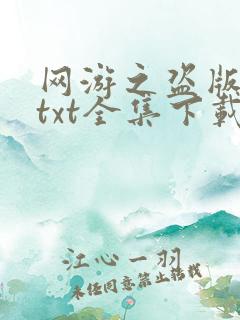 网游之盗版
txt全集下载
江心一羽
未经同意禁止转载